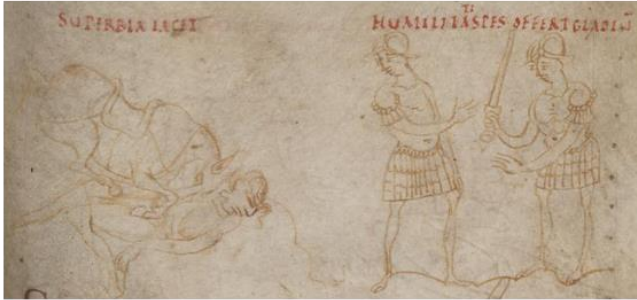 SUPERBIA IACET
HUMILITATI SPES OFFERT GLADIŪ